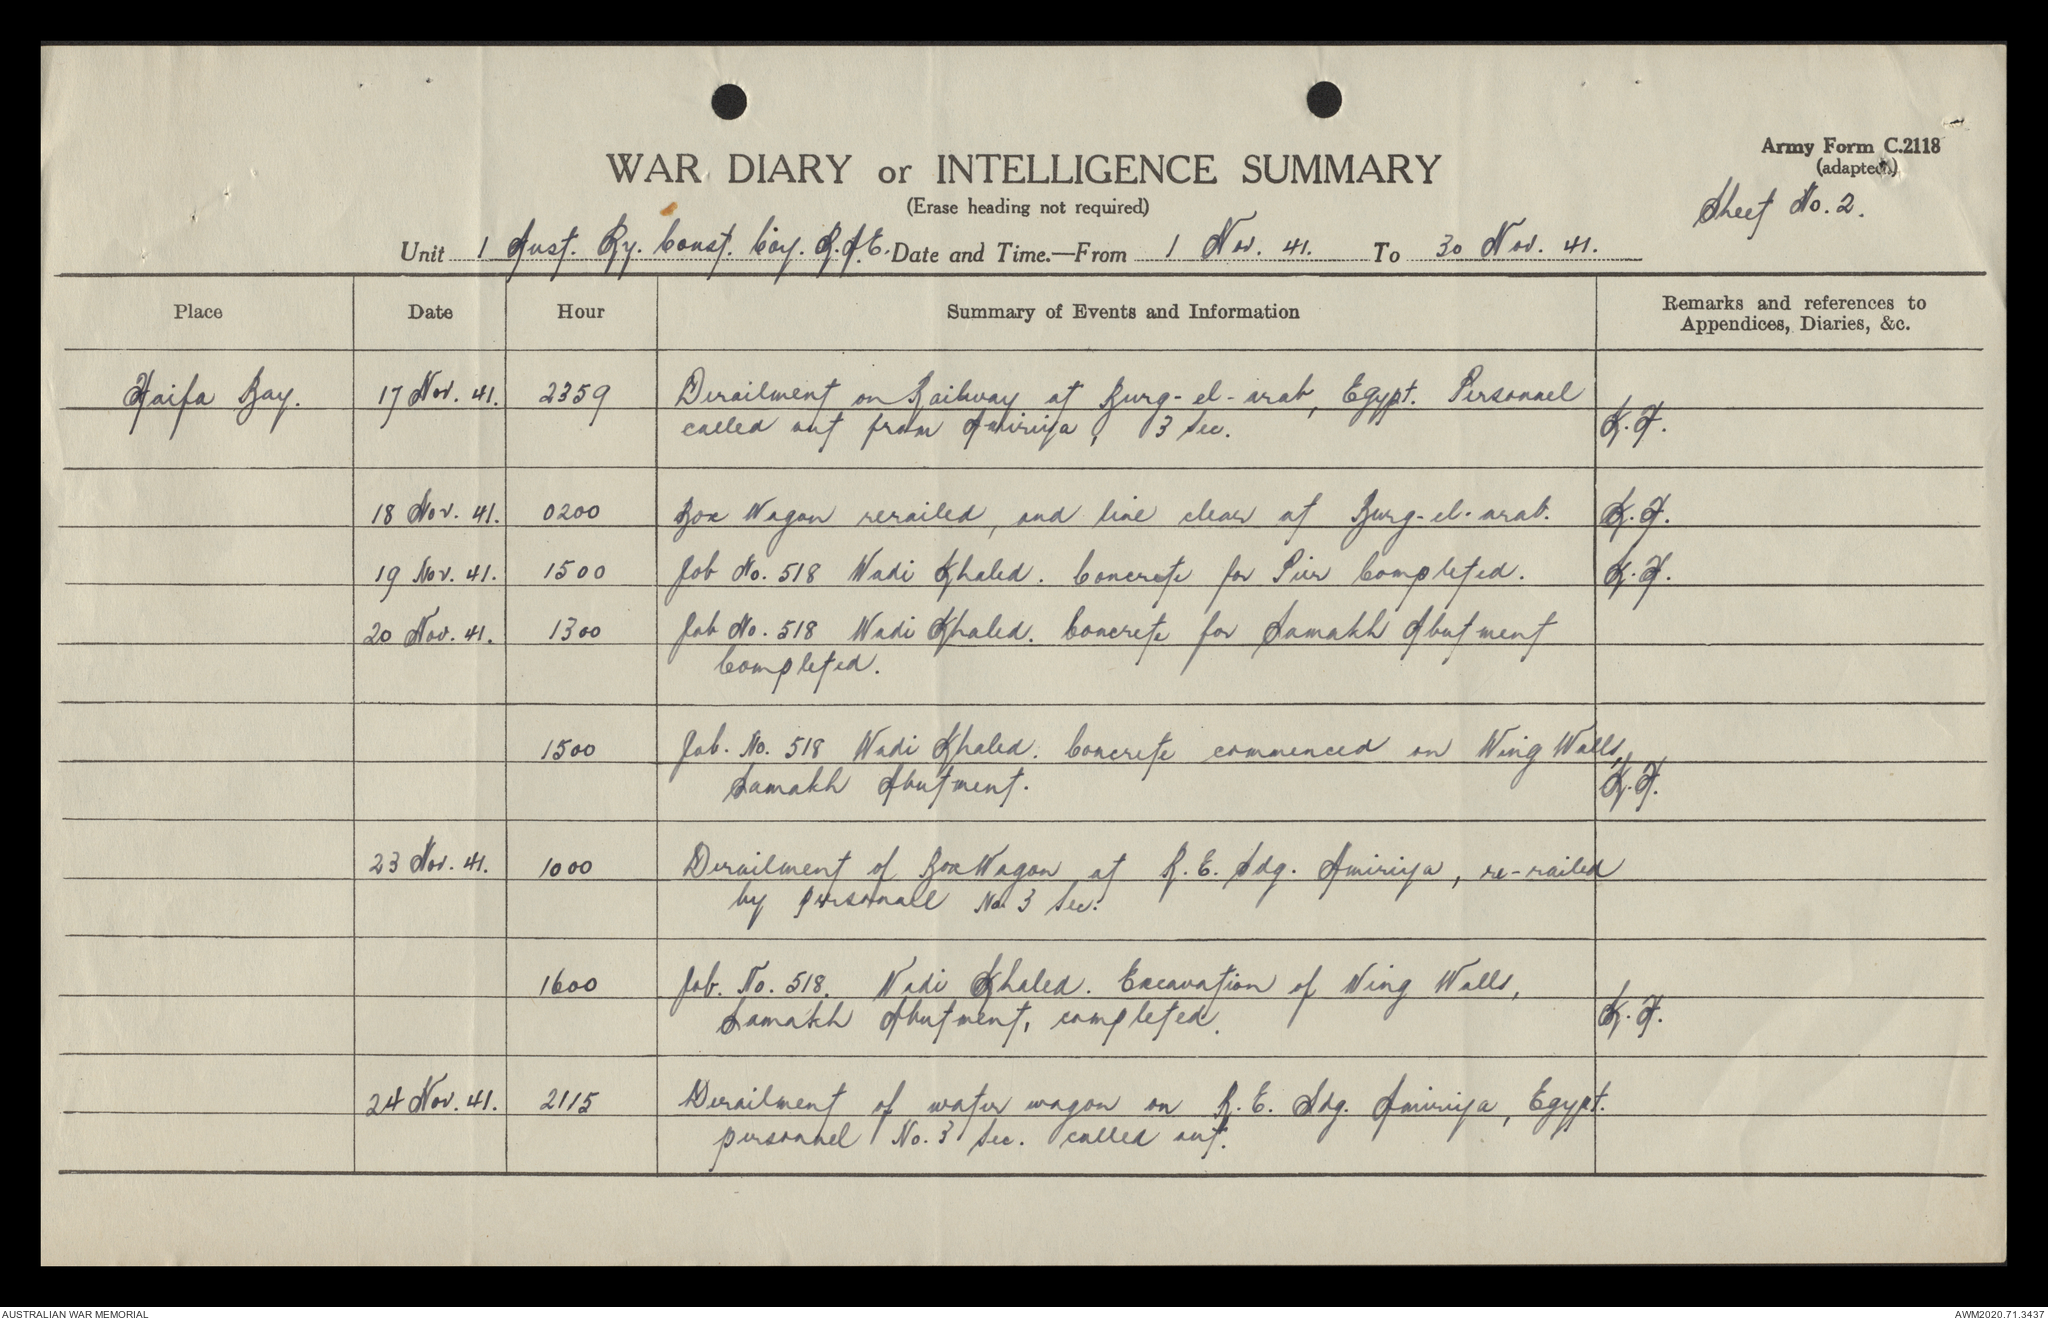 Army Form C.2118
WAR DIARY or INTELLIGENCE SUMMARY
(adapted.)
(Erase heading not required)
Sheet No. 2.
Unit 1 Aust. Ry. Const. Coy. R.A.E. Date and Time.—From 1 Nov. 41. To 30 Nov. 41.
Place Date Hour Summary of Events and Information Remarks and references to
Appendices, Diaries, &c.
Haifa Bay. 17 Nov. 41. 2359 Derailment on Railway at Burg-el-arab, Egypt. Personnel
called out from Amiriya, 3 Sec. K.F.
18 Nov. 41. 0200 Box Wagon rerailed, and line clear at Burg-el-arab. K.F.
19 Nov. 41. 1500 Job No. 518 Wadi Khaled. Concrete for Pier Completed. K.F.
20 Nov. 41. 1300 Job No. 518 Wadi Khaled. Concrete for Samakh Abutment
Completed.
1500 Job. No. 518 Wadi Khaled. Concrete commenced on Wing Walls,
Samakh Abutment. K.F.
23 Nov. 41. 1000 Derailment of Box Wagon at R.E. Sdg. Amiriya, re-railed
by personall No. 3 Sec.
1600 Job. No. 518. Wadi Khaled. Excavation of Wing Walls,
Samakh Abutment, completed. K.F.
24 Nov. 41. 2115 Derailment of water wagon on R.E. Sdg. Amiriya, Egypt.
personnel No. 3 Sec. called out.
AUSTRALIAN WAR MEMORIAL AWM2020.71.3437